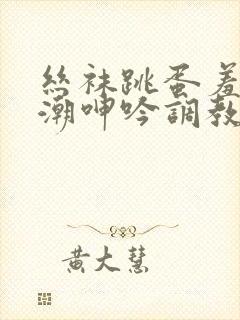 絲袜跳蛋羞
潮呻吟調教
黄大慧